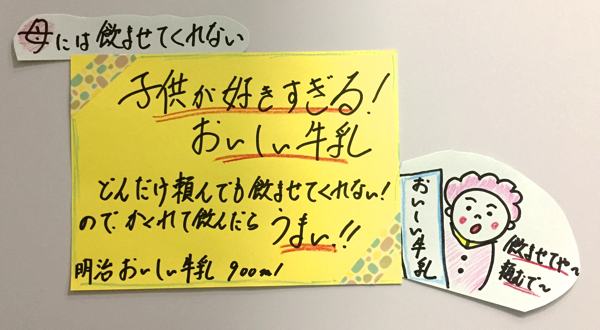 母には飲ませてくれない
子供が好きすぎる!
おいしい牛乳
どんだけ頼んでも飲ませてくれない!
ので、かくれて飲んだら うまい!!
明治おいしい牛乳 900ml
おいしい牛乳
飲ませてや〜
頼むで〜